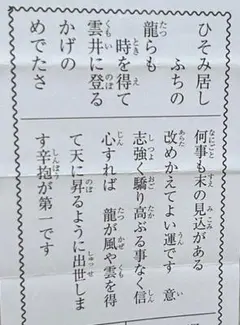 ひそみ居し
ふちの
龍らも
時を得て
雲井に登る
かげの
めでたさ
何事も末の見込がある
改めかえてよい運です 意
志強く驕り高ぶる事なく信
心すれば 龍が風や雲を得
て天に昇るように出世しま
す辛抱が第一です